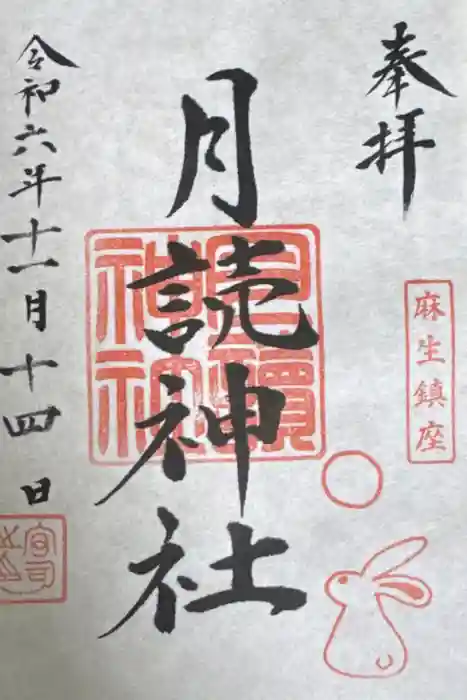 奉拝
麻生鎮座
月読神社
月讀神社
令和六年十一月十四日
宮司之印